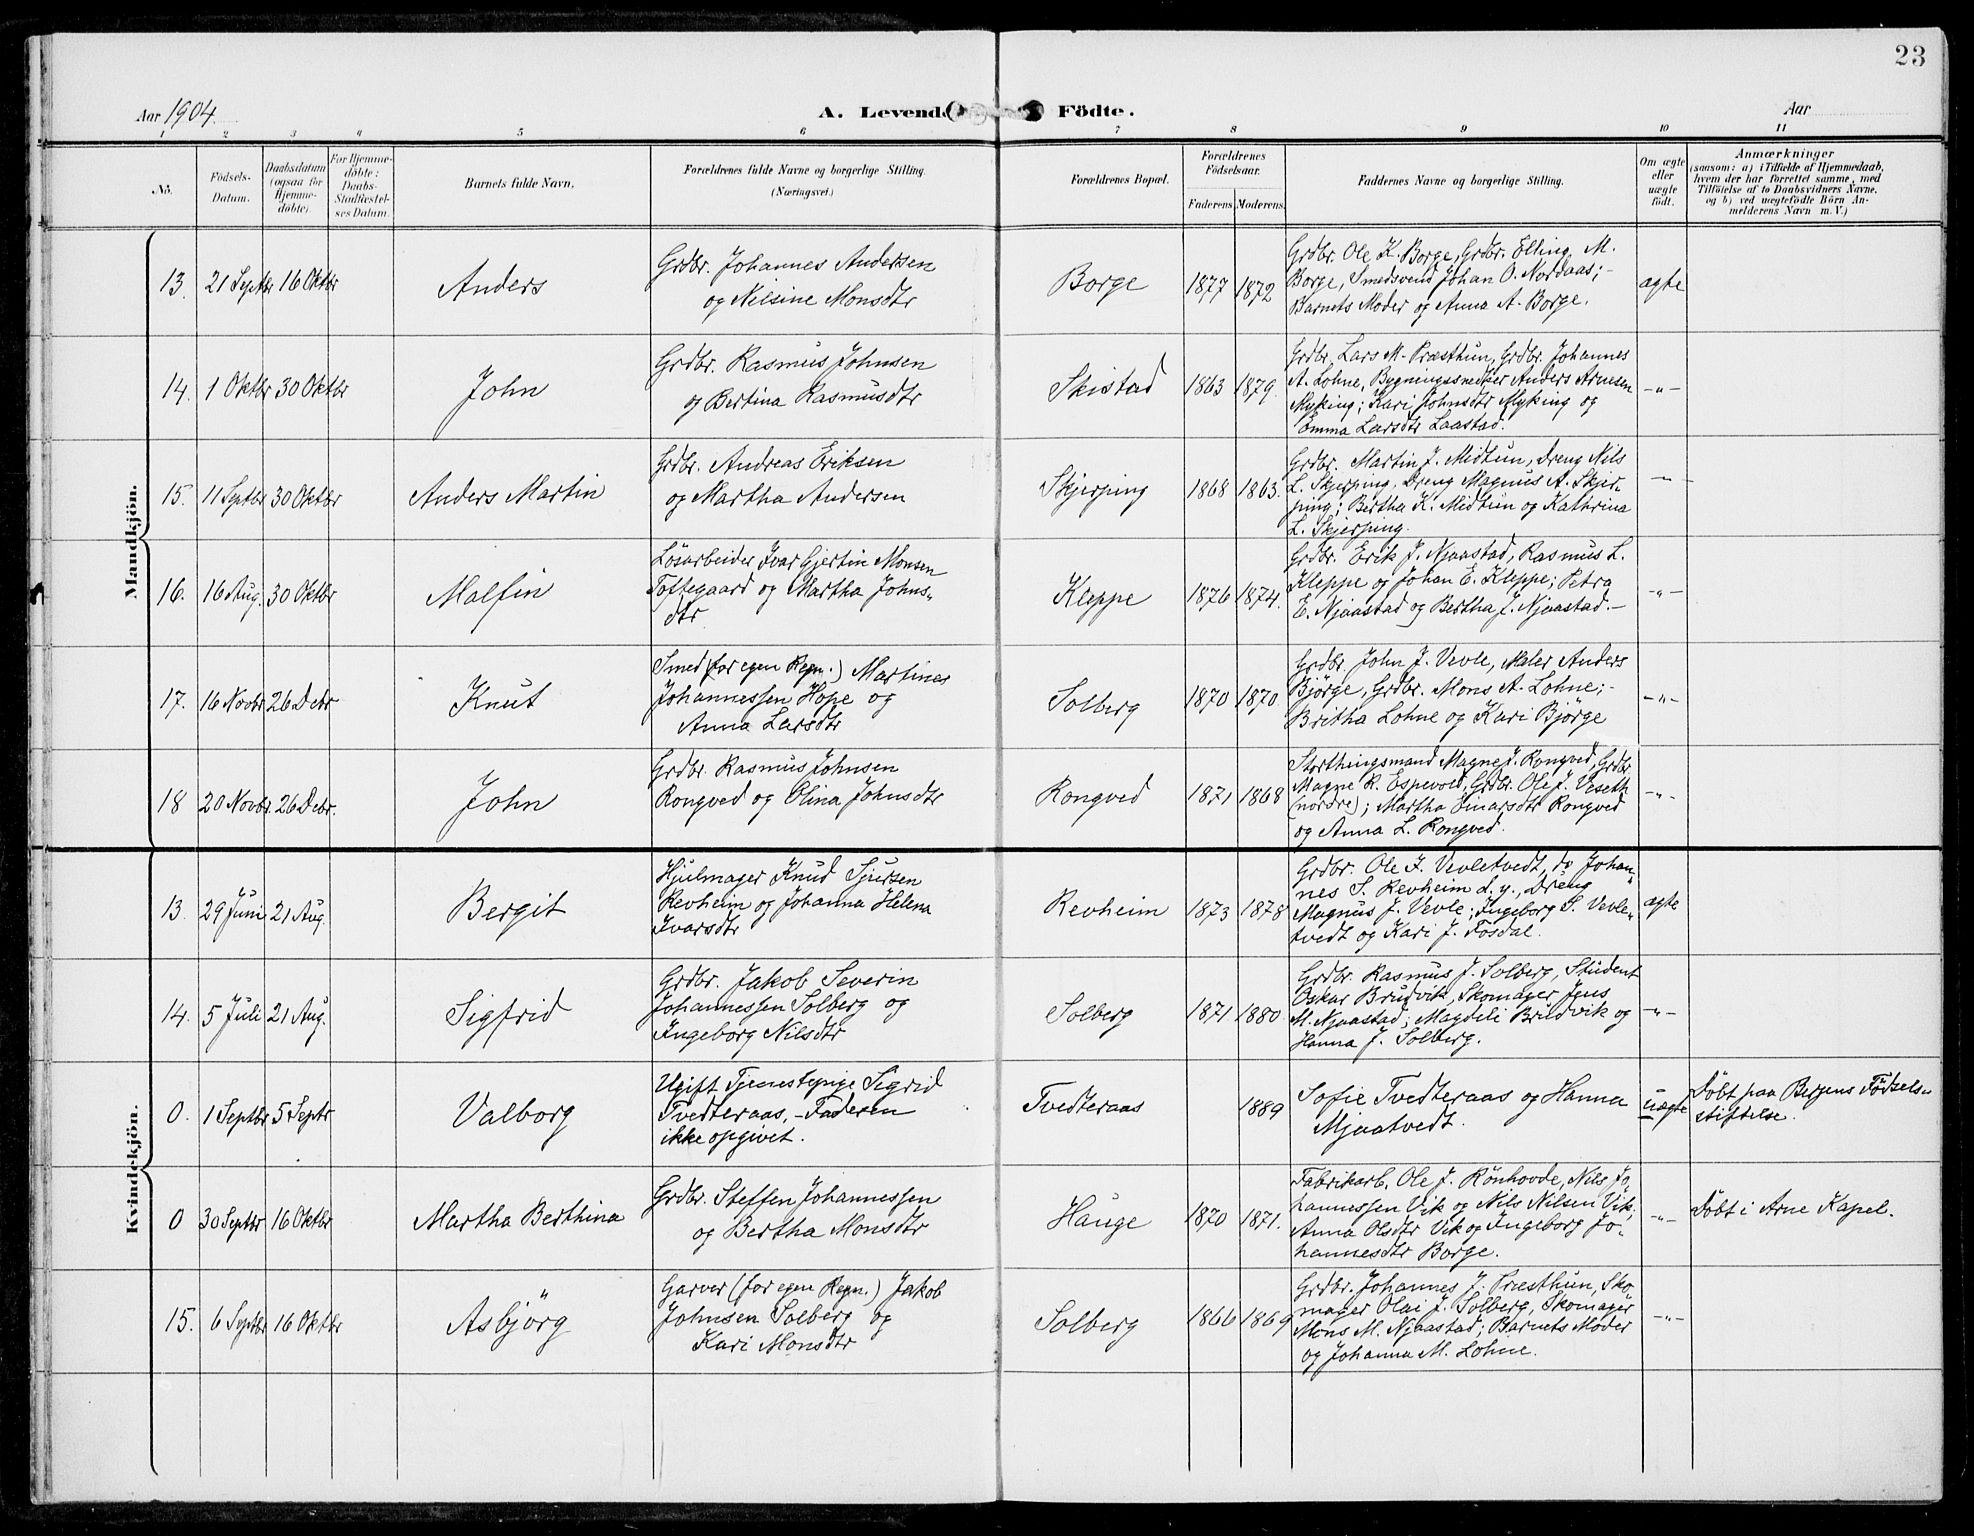 23
Aar 1904.
A. Levende Födte.
Aar
1 2 3 4 5 6 7 8 9 10 11
No.
Födsels-Datum.
Daabsdatum (ogsaa for Hjemme-döbte)
For Hjemme-döbte: Daabs-Stadfæstel-ses Datum.
Barnets fulde Navn.
Forældrenes fulde Navne og borgerlige Stilling.
(Næringsvei.)
Forældrenes Bopæl.
Forældrenes Födselsaar.
Faderens. Moderens.
Faddernes Navne og borgerlige Stilling.
Om ægte eller uægte födt.
Anmærkninger
(saasom: a) i Tilfælde af Hjemmedaab,
hvem der har forrettet samme, med
Tilföielse af to Daabsvidners Navne.
og b) ved uægtefödte Börn An-
melderens Navn m. V.)
Mandkjön.
13. 21 Septbr 16 Oktbr Anders
Grdbr. Johannes Andersen
og Nilsine Monsdtr
Borge 1877 1872
Grdbr. Ole K. Borge, Grdbr. Elling M.
Borge, Smedsvend Johan O. Nordaas;-
Barnets Moder og Anna A. Borge.
ægte
14. 1 Oktbr 30 Oktbr John
Grdbr. Rasmus Johnsen
og Bertina Rasmusdtr
Skistad 1863 1879.
Grdbr. Lars M. Præsthun, Grdbr. Johannes
A. Lohne, Bygningssnedker Anders Arnesen
Myking; Kari Johnsdtr Myking og
Emma Larsdtr Laastad.
-"-
15. 11 Septbr 30 Oktbr Anders Martin
Grdbr. Andreas Eriksen
og Martha Andersen
Skjerping 1868 1863.
Grdbr. Martin J. Midtun, Dreng Nils
L. Skjerping, Dreng Magnus A. Skjer-
ping; Bertha K. Midtun og Kathrina
L. Skjerping.
-"-
16. 16 Aug. 30 Oktbr Malfin
Lösarbeider Ivar Gjertin Monsen
Toftegaard og Martha Johns-
dtr
Kleppe 1876 1874.
Grdbr. Erik J. Njaastad, Rasmus L.
Kleppe og Johan E. Kleppe; Petra
E. Njaastad og Bertha J. Njaastad.-
-"-
17. 16 Novbr 26 Debr Knut
Smed (for egen Regn.) Martines
Johannessen Hope og
Anna Larsdtr
Solberg 1870 1870
Grdbr. John J. Vevle, Maler Anders
Bjørge, Grdbr. Mons A. Lohne;-
Britha Lohne og Kari Bjørge
-"-
18 20 Novbr. 26 Debr. John
Grdbr. Rasmus Johnsen
Rongved og Olina Johnsdtr
Rongved 1871 1868
Storthingsmand Magne J. Rongved, Grdbr.
Magne R. Espevold, Grdbr. Ole J. Veseth
(nordre); Martha Einarsdtr Rongved
og Anna L. Rongved.
-"-
Kvindekjön.
13. 29 Juni 21 Aug. Bergit
Hjulmager Knud Sjursen
Revheim og Johanna Helena
Ivarsdtr
Revheim 1873 1878
Grdbr. Ole J. Vevletvedt, do Johan-
nes S. Revheim d.y., Dreng
Magnus J. Vevle; Ingeborg S. Vevle-
tvedt og Kari J. Fosdal.
ægte
14. 5 Juli 21 Aug. Sigfrid
Grdbr. Jakob Severin
Johannessen Solberg og
Ingeborg Nilsdtr
Solberg 1871 1880
Grdbr. Rasmus J. Solberg, Student
Oskar Brudvik, Skomager Jens
M. Njaastad; Magdeli Brudvik og
Hanna J. Solberg.
-"-
0. 1 Septbr 5 Septr Valborg
Ugift Tjenestepige Sigrid
Tvedteraas,- Faderen
ikke opgivet.
Tvedteraas 1889
Sofie Tvedteraas og Hanna
Mjaatvedt.
uægte
Döbt paa Bergens Födsels-
stiftelse.
0 30 Septbr 16 Oktbr Martha Berthina
Grdbr. Steffen Johannessen
og Bertha Monsdtr
Hauge 1870 1871.
Fabrikarb. Ole J. Rönhovde, Nils Jo-
hannessen Vik og Nils Nilsen Vik;
Anna Olsdtr Vik og Ingeborg Jo-
hannesdtr Borge.
-"-
Döbt i Arne Kapel.
15. 6 Septbr 16 Oktbr Asbjörg
Garver (for egen Regn.) Jakob
Johnsen Solberg og
Kari Monsdtr
Solberg 1866 1869
Grdbr. Johannes J. Præsthun, Sko-
mager Olai J. Solberg, Skomager
Mons M. Njaastad; Barnets Moder
og Johanna M. Lohne.
-"-